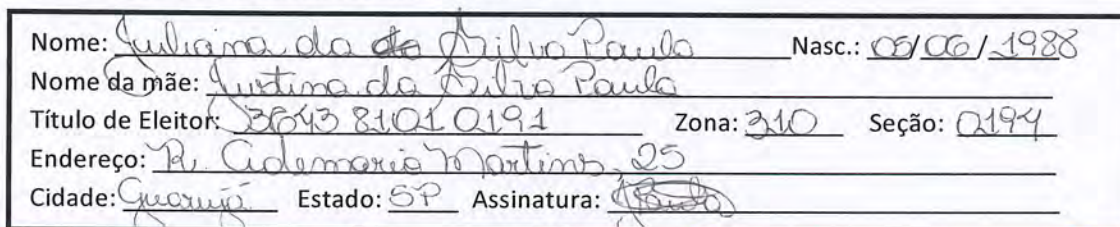 Nome: Juliana da Silva Paula Nasc.: 05/06/1988
Nome da mãe: Justina da Silva Paula
Título de Eleitor: 3643 8101 0191 Zona: 310 Seção: 0194
Endereço: R. Ademario Martins, 25
Cidade: Guarujá Estado: SP Assinatura: